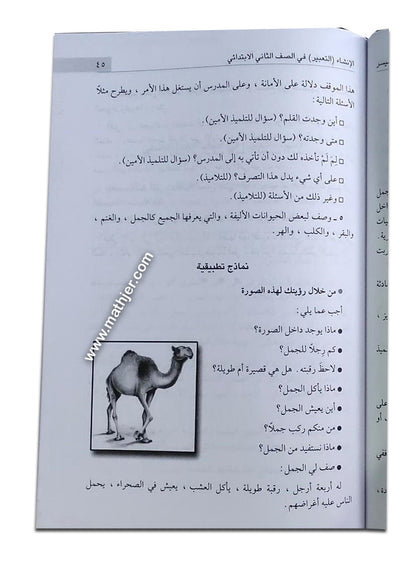 الإنشاء (التعبير) في الصف الثاني الابتدائي
٤٥
هذا الموقف دلالة على الأمانة ، وعلى المدرس أن يستغل هذا الأمر ، ويطرح مثلاً
الأسئلة التالية:
□ أين وجدت القلم؟ (سؤال للتلميذ الأمين).
□ متى وجدته؟ (سؤال للتلميذ الأمين).
□ لِمَ لَمْ تأخذه لك دون أن تأتي به إلى المدرس؟ (سؤال للتلميذ الأمين).
□ على أي شيء يدل هذا التصرف؟ (للتلاميذ).
□ وغير ذلك من الأسئلة (للتلاميذ).
٥ ـ وصف لبعض الحيوانات الأليفة ، والتي يعرفها الجميع كالجمل ، والغنم ،
والبقر ، والكلب ، والهر.
نماذج تطبيقية
● من خلال رؤيتك لهذه الصورة
أجب عما يلي:
● ماذا يوجد داخل الصورة؟
● كم رجلاً للجمل؟
● لاحظ رقبته. هل هي قصيرة أم طويلة؟
● ماذا يأكل الجمل؟
● أين يعيش الجمل؟
● من منكم ركب جملاً؟
● ماذا نستفيد من الجمل؟
● صف لي الجمل:
له أربعة أرجل ، رقبة طويلة ، يأكل العشب ، يعيش في الصحراء ، يحمل
الناس عليه أغراضهم.
www.mathjer.com